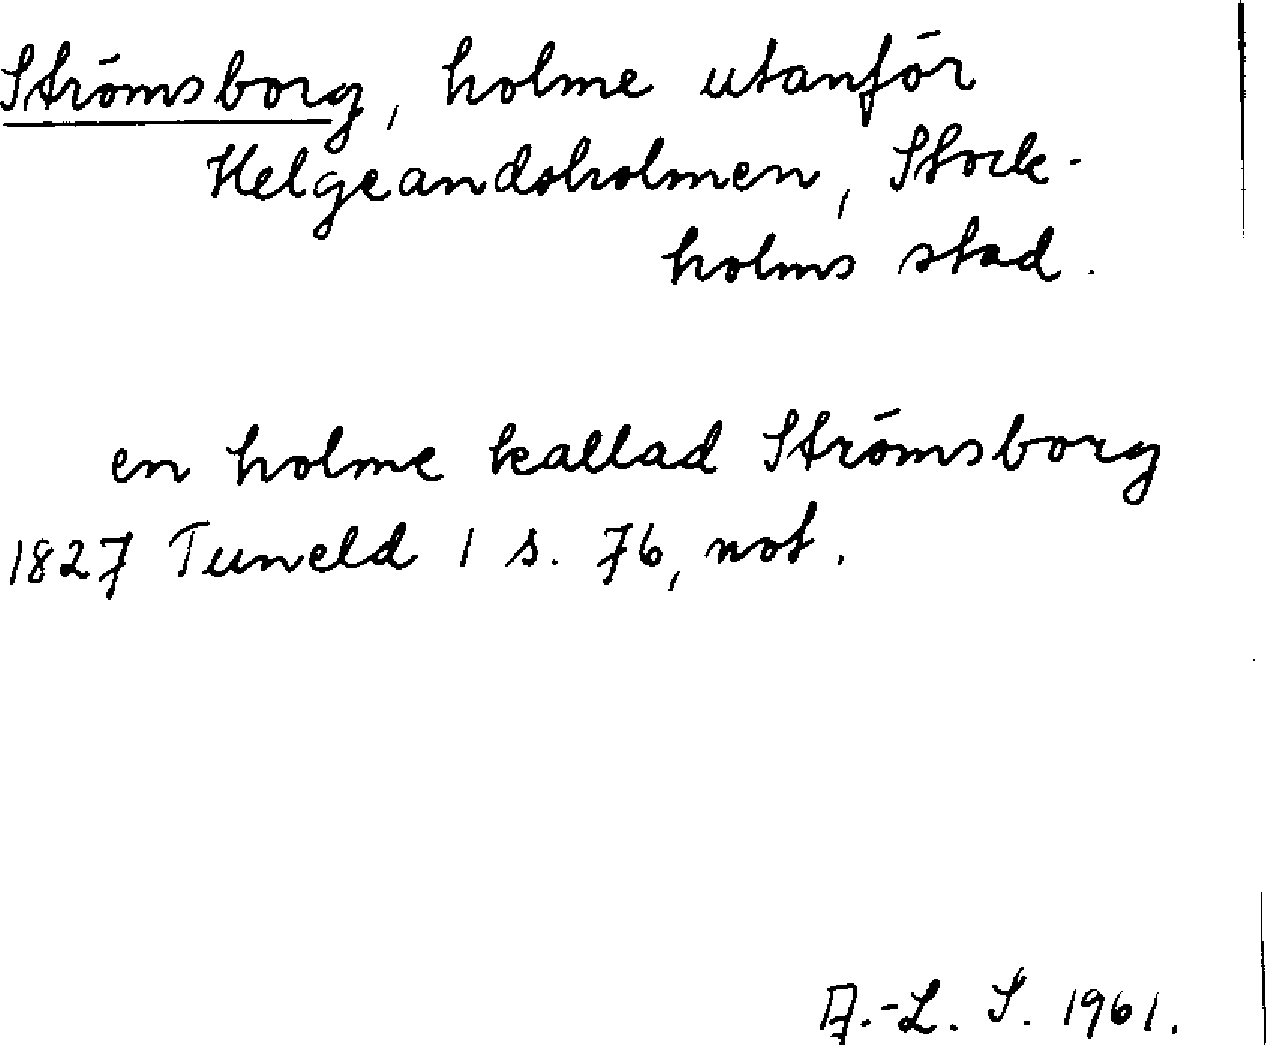 Strömsborg, holme utanför
Helgeandsholmen, Stock-
holms stad.
en holme kallad Strömsborg
1827 Tuneld 1 s. 76, not.
A.-L. S. 1961.